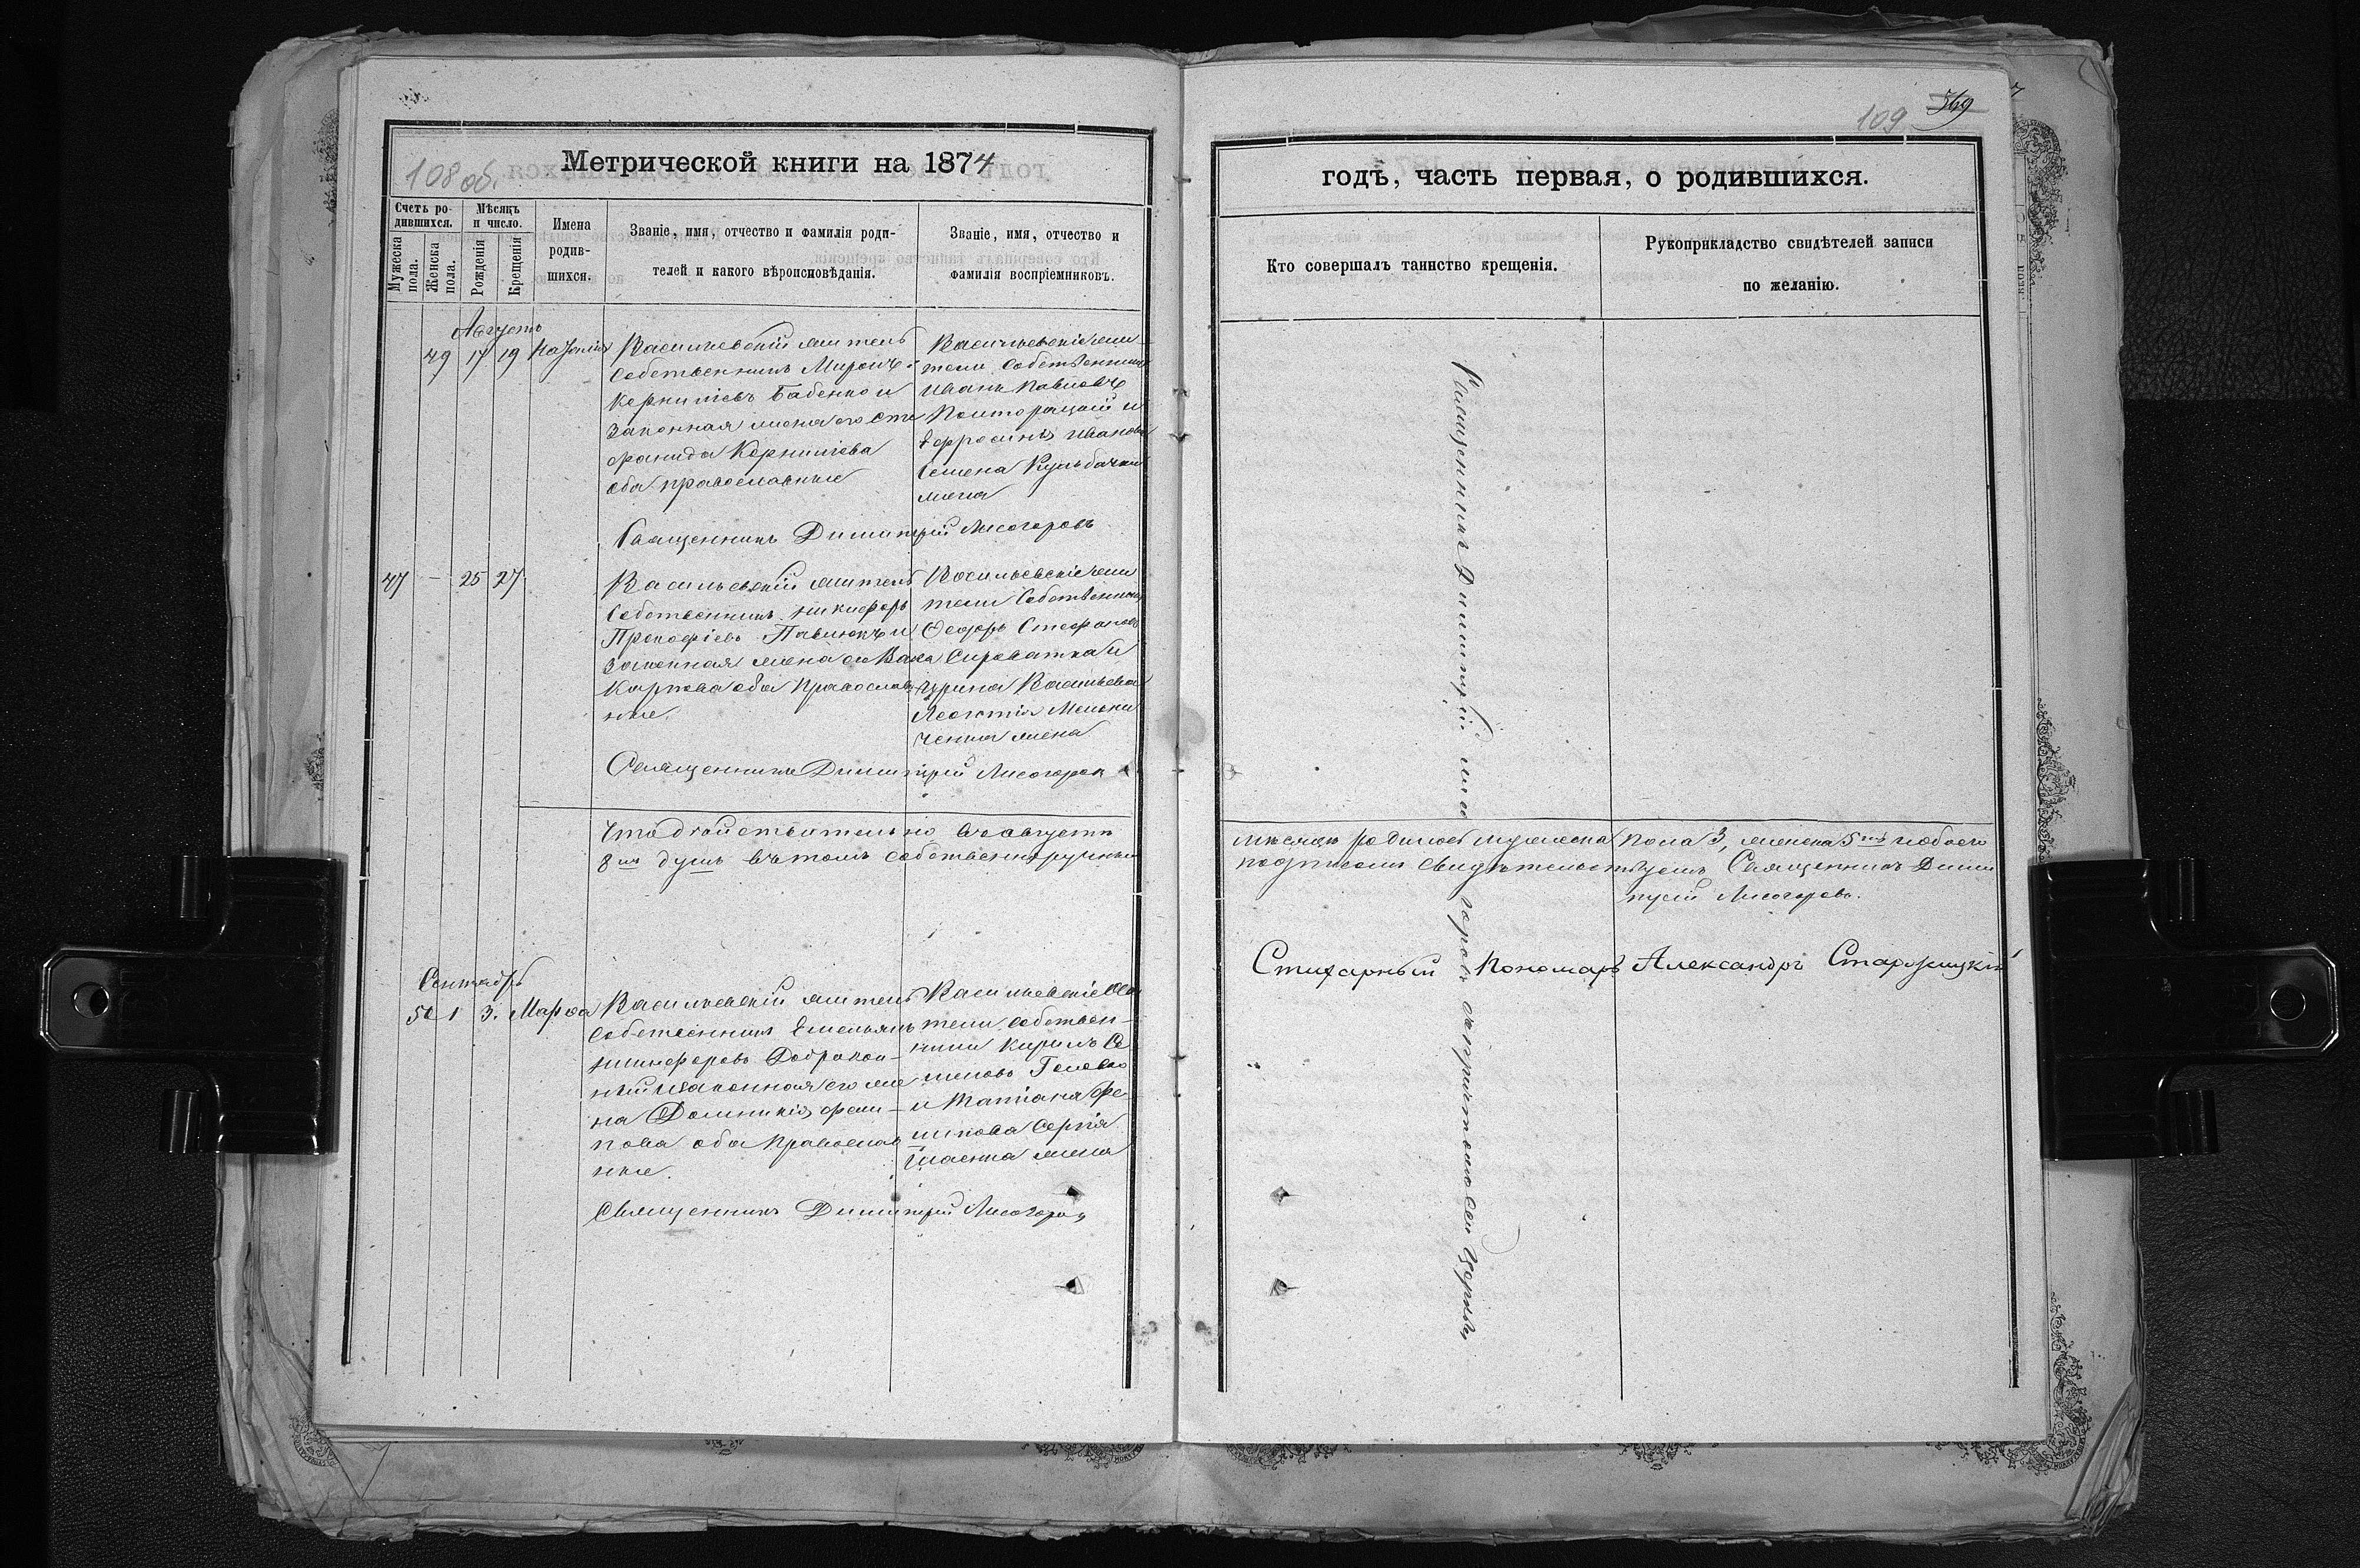 108 об.
Метрической книги на 1874
Счетъ ро-
дившихся.
Мужеска пола.
Женска пола.
Мѣсяцъ
и число.
Рожденія
Крещенія
Имена
родив-
шихся.
Званіе, имя, отчество и фамилія роди-
телей и какого вѣроисповѣданія.
Званіе, имя, отчество и
фамилія воспріемниковъ.
Августъ
49 17 19
Васильевскій житель
собственникъ Миронъ
Корниліевъ Бабенко и
законная жена его Сте
фанида Корниліева
оба православные
Васильевскіе жи
тели собственники
Иванъ Павловъ
Полторацкій и
Евфросинія Иванова
Семена Кульбачки
жена
Священникъ Димитрій Лисогоровъ
47 — 25 27
Васильевскій житель
собственникъ Никифоръ
Прокофіевъ Павлюкъ и
законная жена его
Карпова оба православ
ные.
Васильевскіе жи
тели собственники
Ѳеодоръ Стефановъ
Сироватка и
Ирина Васильева
Леонтія Мельни
ченка жена
Священникъ Димитрій Лисогоровъ
Что дѣйствительно въ августѣ
8мь душъ въ томъ собственноручнымъ
Сентябрь
50 1 3. Марѳа
Васильевскій житель
собственникъ Емельянъ
Никифоровъ Доброкон-
ный и законная его же
на Домникія Фили-
пова оба православ
ные.
Васильевскіе жи
тели собствен-
ники Кирилъ Се
меновъ Головко
и Татіана Фи
липова Сергія
жена
Священникъ Димитрій Лисогоровъ
109 369
годъ, часть первая, о родившихся.
Кто совершалъ таинство крещенія.
Рукоприкладство свидѣтелей записи
по желанію.
Священникъ Димитрій Лисогоровъ съ причтомъ сей церкви
мѣсяцѣ родилось мужеска пола 3, женска 5ть а обоего
подписомъ свидѣтельствуемъ Священникъ Дими
трій Лисогоровъ.
Стихарный Пономарь Александръ Старожицкій